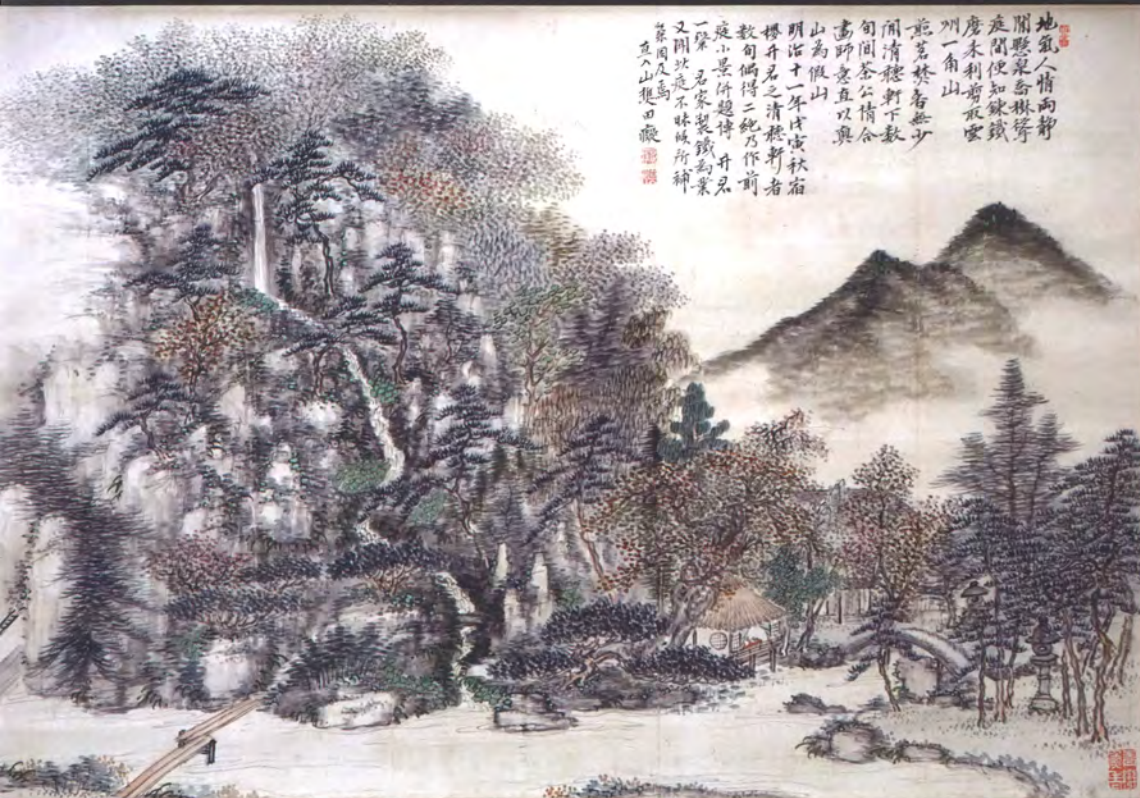 地氣人情両静
閒懸泉樹聳
庭間便知錬鐵
磨来利剪取雲
州一角山
煎茗焚香無少
閑清穂軒下数
旬間公情合
畵師意直以真
山為假山
明治十一年戊寅秋宿
櫻井君之清穂軒者
数旬偶得二絶乃作前
庭小景併題博井君
一粲 君家製鐵為業
又聞此庭不昧侯所補
築因及焉
直入山樵田癡